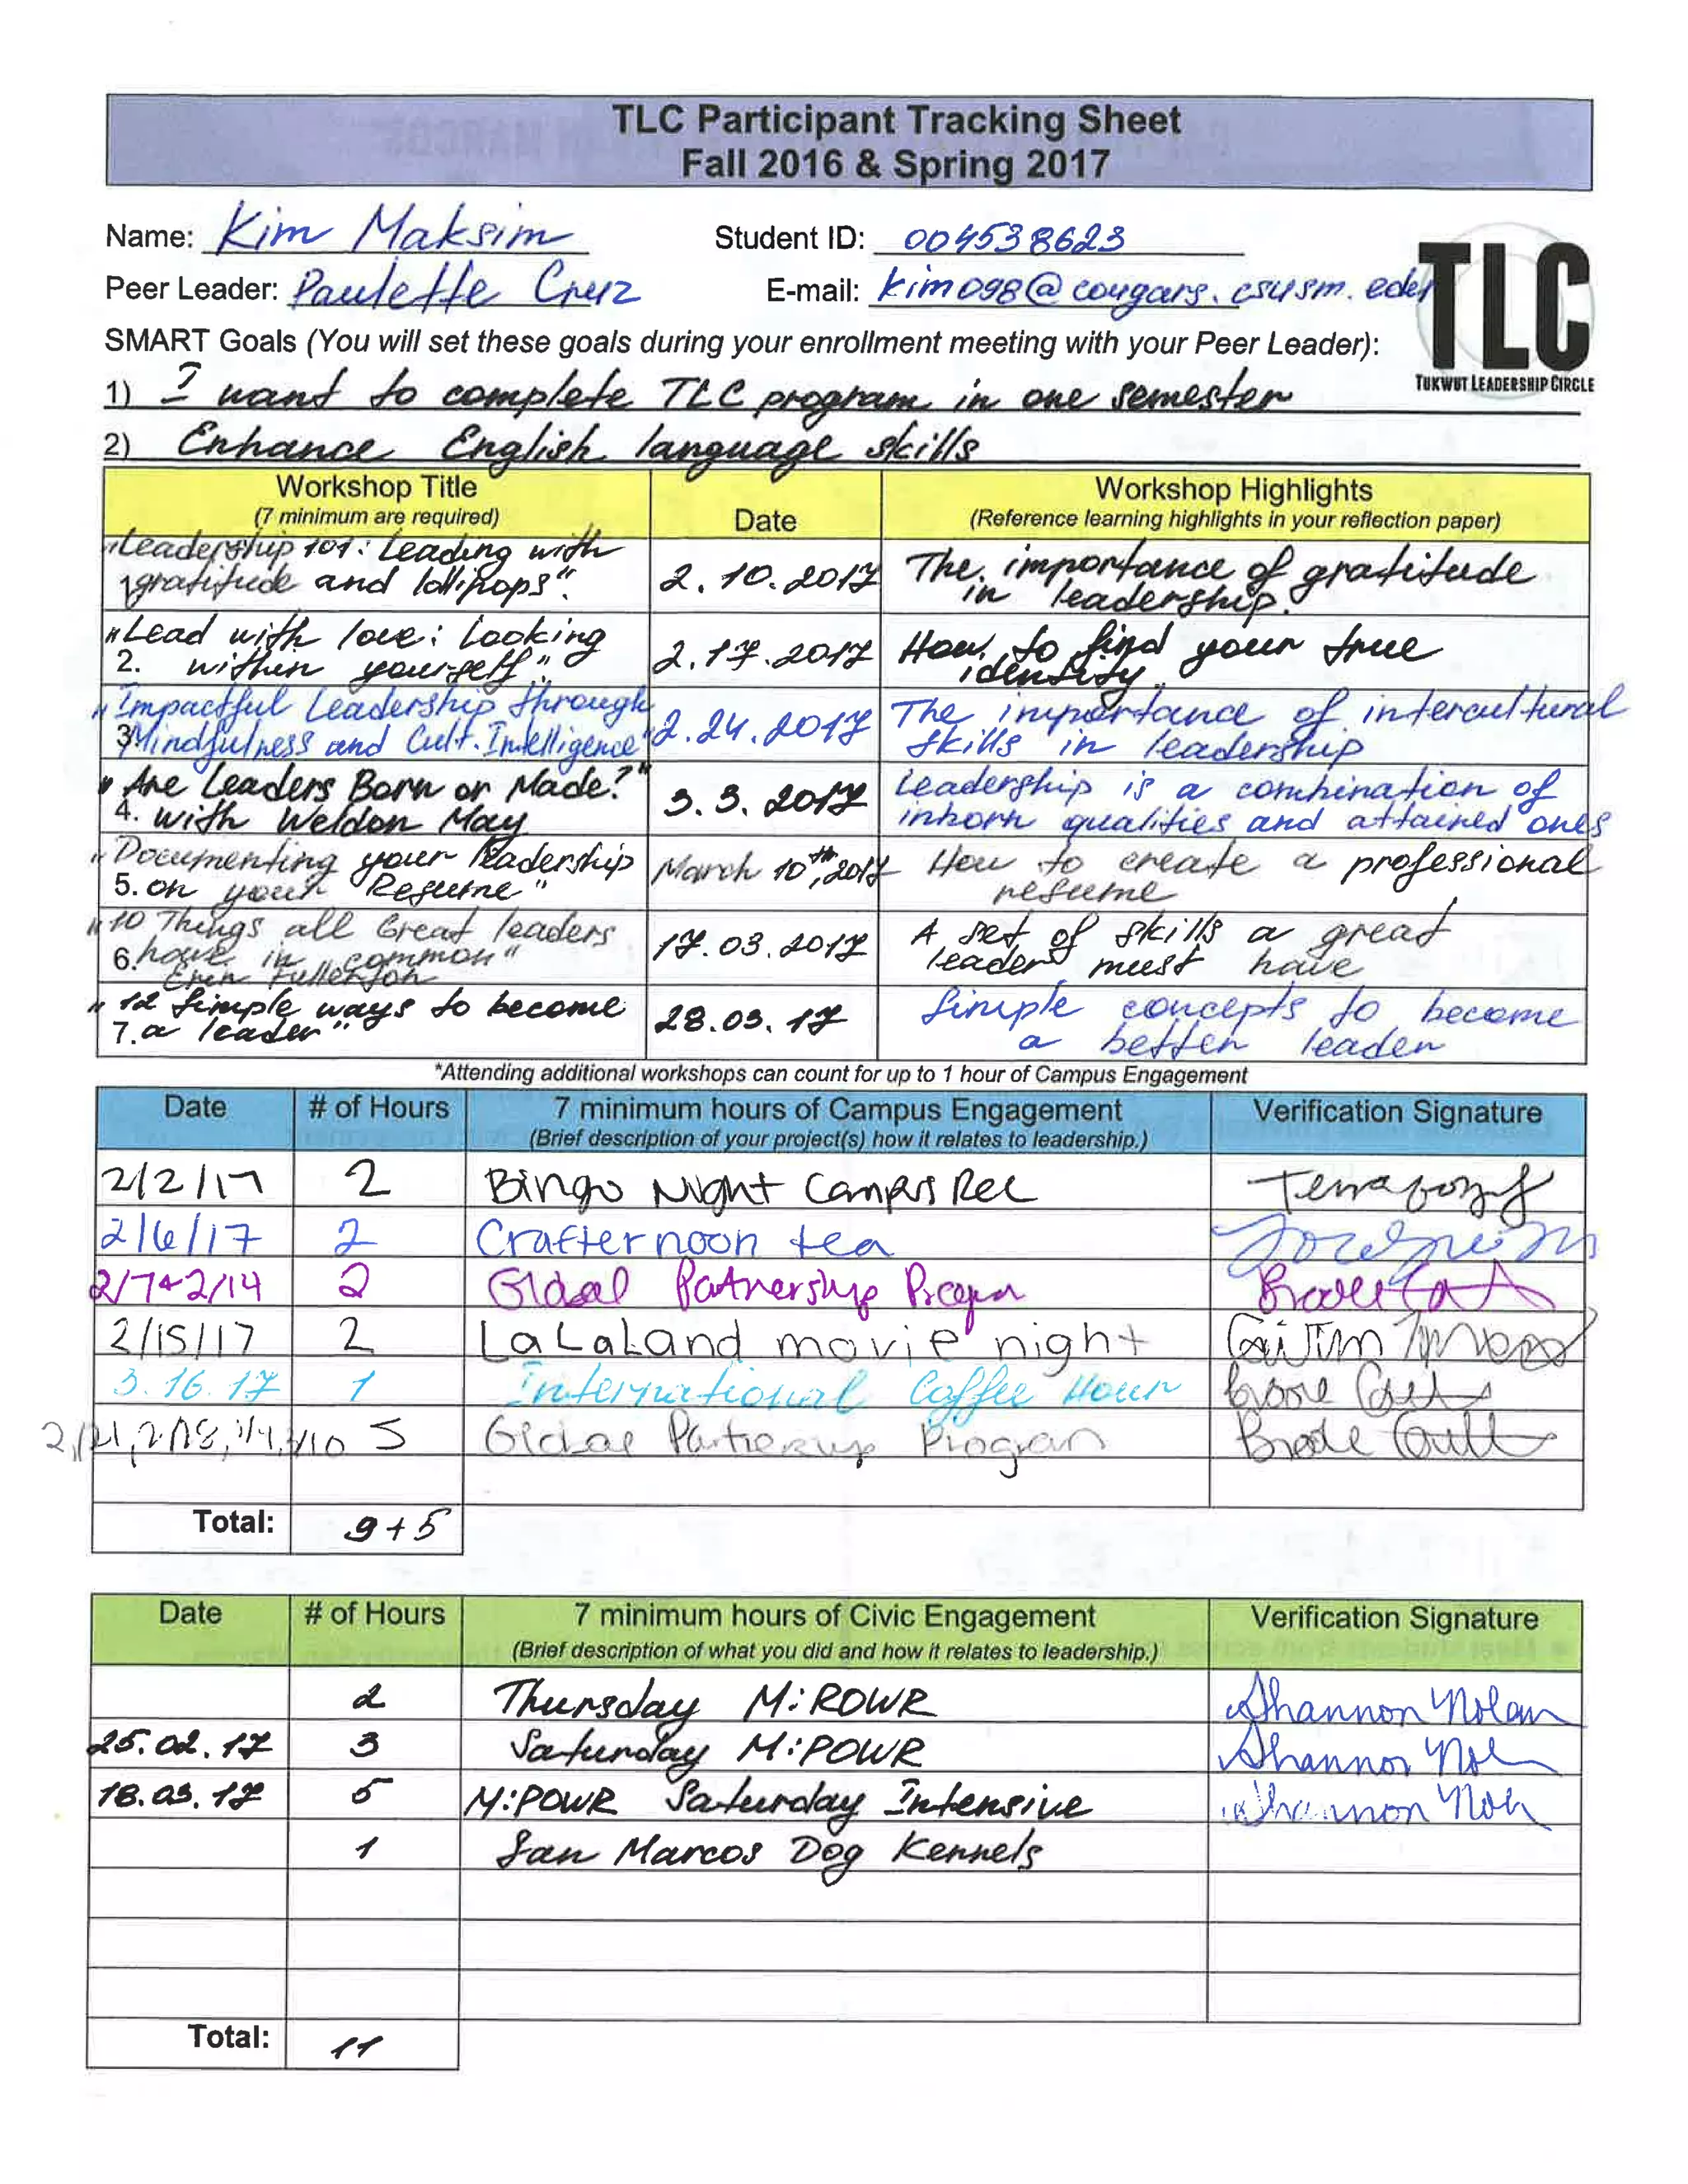 TLC Participant Tracking Sheet
Fall 2016 & Spring 2017
Name: Kim Maksim Student ID: 004538623
Peer Leader: Paulette Cruz E-mail: kim098@cougars.csusm.edu
SMART Goals (You will set these goals during your enrollment meeting with your Peer Leader):
TLC
TUKWUT LEADERSHIP CIRCLE
1) I want to complete TLC program in one semester
2) Enhance English language skills
Workshop Title Date Workshop Highlights
(7 minimum are required) (Reference learning highlights in your reflection paper)
"Leadership 101: Leading with
1 gratitude and lollipops". 2.10.2017 The importance of gratitude
in leadership.
"Lead with love: Looking
2. within yourself" 2.17.2017 How to find your true
identity.
"Impactful Leadership through
3 Mindfulness and Cult. Intelligence" 2.24.2017 The importance of intercultural
skills in leadership
"Are Leaders Born or Made?"
4. with Weldon May 3.3.2017 Leadership is a combination of
inborn qualities and attained ones
"Documenting your leadership
5. on your Resume" March 10th, 2017 How to create a professional
resume
"10 Things all Great leaders
6. have in common" 17.03.2017 A set of skills a great
Erin Fullerton leader must have
"12 simple ways to become
7. a leader" 28.03.17 Simple concepts to become
a better leader
*Attending additional workshops can count for up to 1 hour of Campus Engagement
Date # of Hours 7 minimum hours of Campus Engagement Verification Signature
(Brief description of your project(s) how it relates to leadership.)
2/2/17 2 Bingo Night Campus Rec
2/6/17 2 Crafternoon tea
2/7+2/14 2 Global Partnership Program
2/15/17 2 LaLaLand movie night
3.16.17 1 International Coffee Hour
5 Global Partnership Program
Total: 9+5
Date # of Hours 7 minimum hours of Civic Engagement Verification Signature
(Brief description of what you did and how it relates to leadership.)
2 Thursday M:ROWR Shannon Nolan
25.02.17 3 Saturday M:POWR Shannon
18.03.17 5 M:POWR Saturday Intensive Shannon
1 San Marcos Dog Kennels
Total: 11